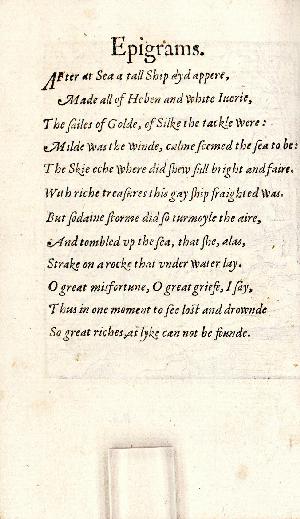 Epigrams.
After at Sea a tall Ship dyd appere,
Made all of Heben and white Iuorie,
The sailes of Golde, of Silke the tackle were:
Milde was the winde, calme seemed the sea to be:
The Skie eche where did shew full bright and faire.
With riche treasures this gay ship fraighted was.
But sodaine storme did so turmoyle the aire,
And tombled vp the sea, that she, alas,
Strake on a rocke that vnder water lay.
O great misfortune, O great griefe, I say,
Thus in one moment to see lost and drownde
So great riches, as lyke can not be founde.